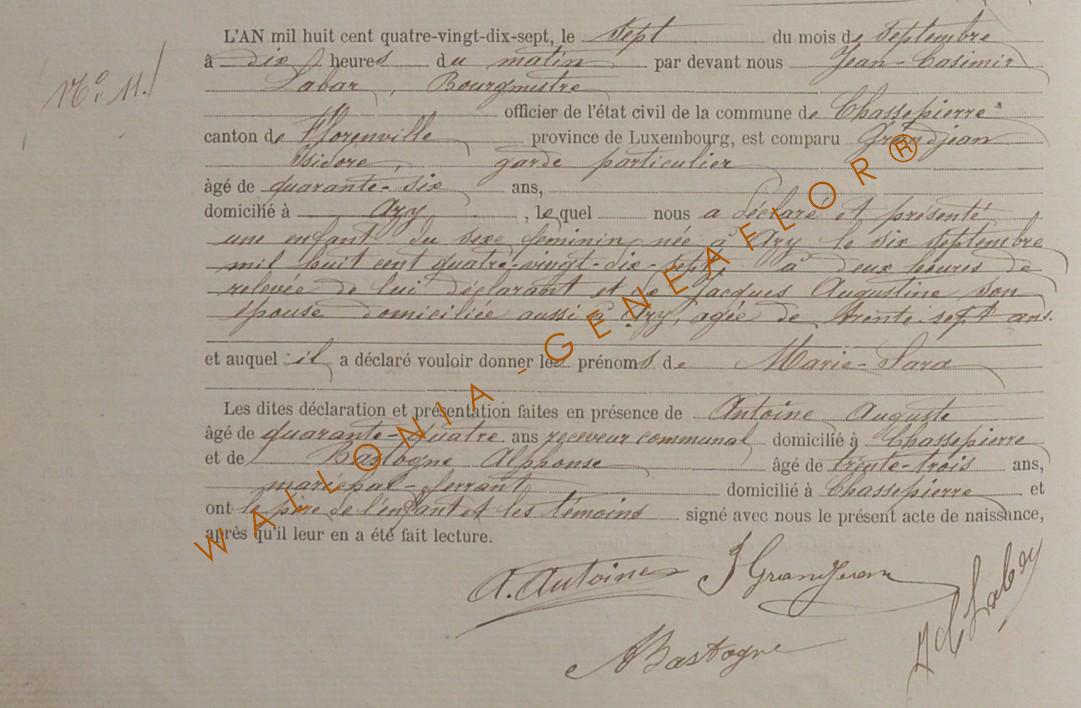 N° 11.
L'AN mil huit cent quatre-vingt-dix-sept, le sept du mois de septembre
à dix heures du matin par devant nous Jean-Casimir
Labar, Bourgmestre
officier de l'état civil de la commune de Chassepierre
canton de Florenville province de Luxembourg, est comparu Grandjean
Isidore, garde particulier
âgé de quarante-six ans,
domicilié à Azy, lequel nous a déclaré et présenté
une enfant du sexe féminin née à Azy le six septembre
mil huit cent quatre-vingt-dix-sept à deux heures de
relevée de lui déclarant et de Jacques Augustine son
épouse domiciliée aussi à Azy, agée de trente-sept ans.
et auquel il a déclaré vouloir donner les prénoms de Marie-Sara
Les dites déclaration et présentation faites en présence de Antoine Auguste
âgé de quarante-quatre ans receveur communal domicilié à Chassepierre
et de Bastogne Alphonse âgé de trente-trois ans,
maréchal-ferrant domicilié à Chassepierre et
ont le père de l'enfant et les témoins signé avec nous le présent acte de naissance,
après qu'il leur en a été fait lecture.
A. Antoine J Grandjean
ABastogne J C Labar
WALLONIA-GENEAFLOR®